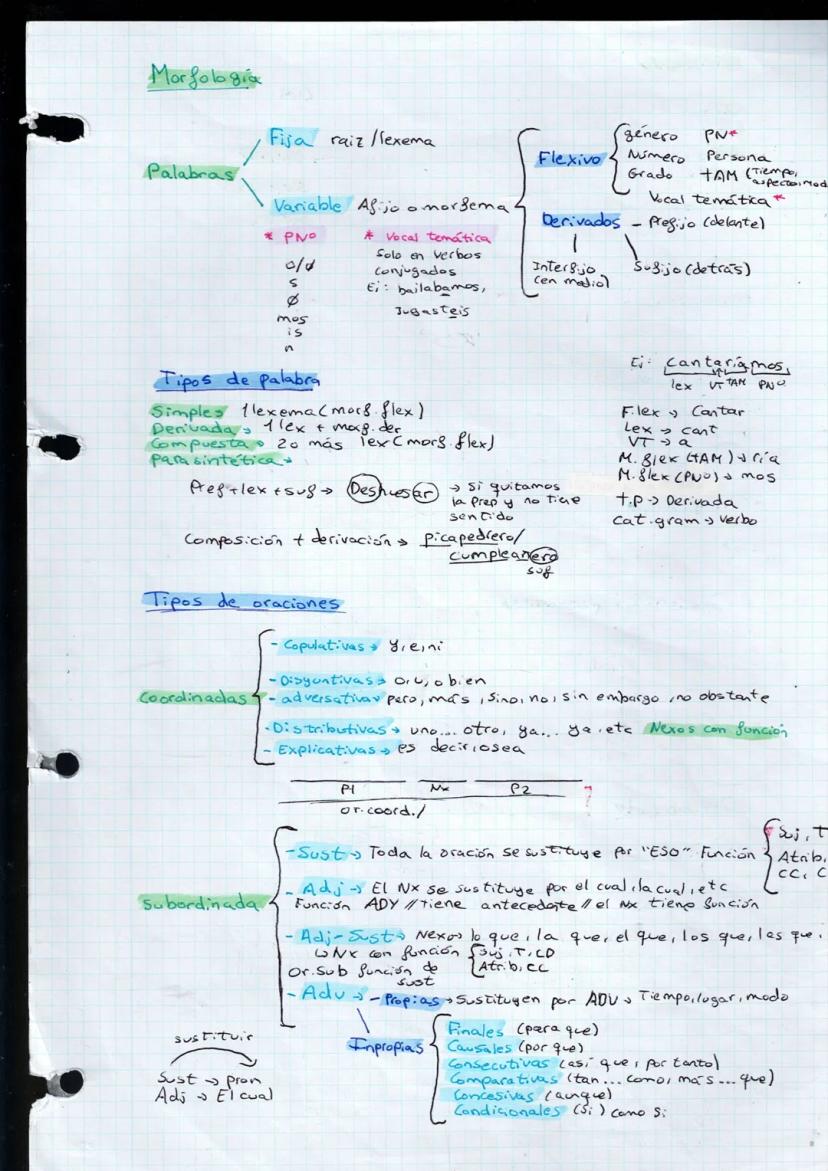 Morfología
Palabras
Fija raiz/lexema
Variable Afijo o morfema
Flexivo
género PN*
Número Persona
Grado TAM (Tiempo, aspecto, mod
Vocal temática *
Derivados - Prefijo (delante)
Interfijo (en medio)
Sufijo (detrás)
* PNº
o/ø
s
ø
mos
is
n
* Vocal temática
Solo en verbos
conjugados
Ej: bailabamos,
Jugasteis
Tipos de palabra
Simple → 1 lexema (morf. flex)
Derivada → 1 lex + morf. der
Compuesta → 2 o más lex (morf. flex)
Parasintética →
Pref + lex + suf → Deshuesar → Si quitamos
la prep y no tiene
sentido
Composición + derivación → picapedrero/
cumpleañero
suf
Ej: Cantaríamos
lex VT TAM PNº
F.lex → Cantar
Lex → cant
VT → a
M. flex (TAM) → ría
M. flex (PNº) → mos
T.P → Derivada
Cat. gram → verbo
Tipos de oraciones
Coordinadas
- Copulativas → y, e, ni
- Disyuntivas → o, u, o bien
- adversativa → pero, más, sino, no, sin embargo, no obstante
- Distributivas → uno... otro, ya... ya, etc Nexos con función
- Explicativas → es decir, o sea
P1 Nx P2
or. coord./
?
Subordinada
- Sust → Toda la oración se sustituye por "ESO" Función
Suj, T
Atrib,
CC, C
- Adj → El Nx se sustituye por el cual, la cual, etc
Función ADY // tiene antecedente // el Nx tiene función
- Adj-Sust → Nexos lo que, la que, el que, los que, las que.
↳ Nx con función Suj, T, CD
Or. Sub función de sust Atrib, CC
- Adv → - Propias → Sustituyen por ADV → Tiempo, lugar, modo
Inpropias
Finales (para que)
Causales (por que)
Consecutivas (así que, por tanto)
Comparativas (tan... como, más... que)
Concesivas (aunque)
Condicionales (Si) como si
sustituir
Sust → pron
Adj → El cual